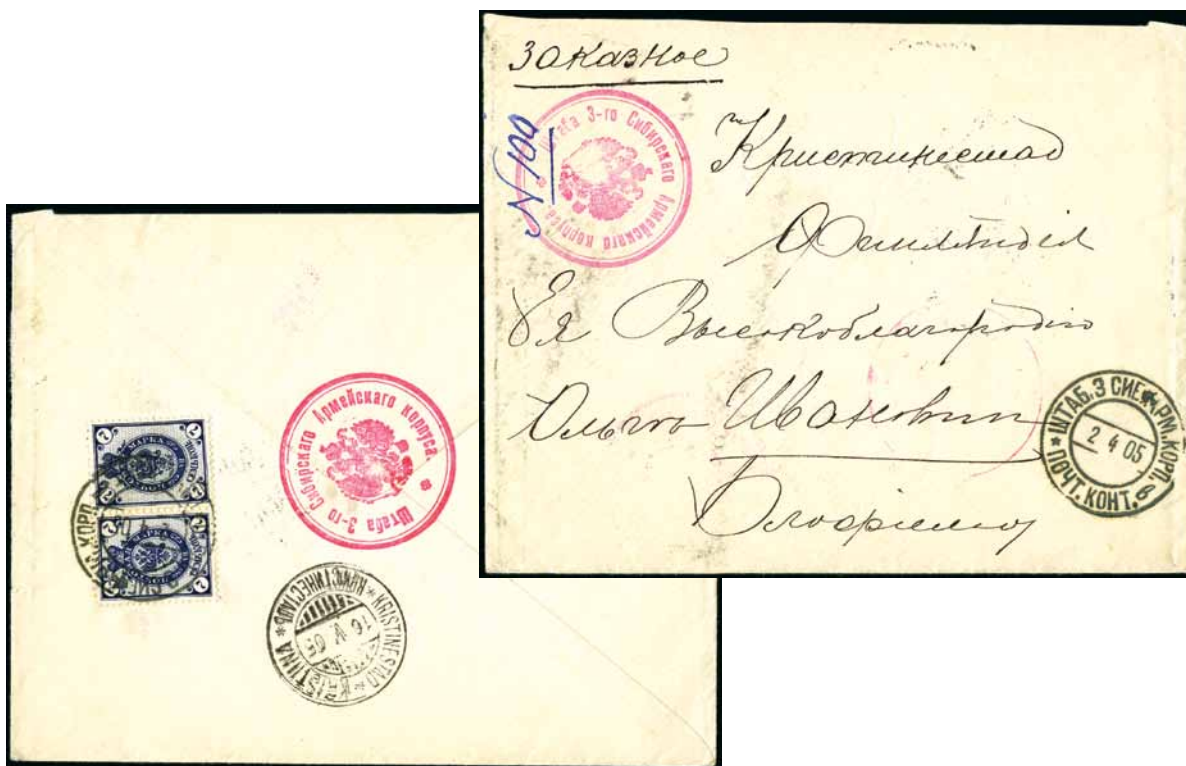 Заказное
N 100
Штаба 3-го Сибирскаго Армейскаго корпуса
Кристинестад
Финляндия
Ея Высокоблагородію
Ольге Ивановне
ШТАБ. 3 СИБ. АРМ. КОРП.
2 4 05
ПОЧТ. КОНТ.
Штаба 3-го Сибирскаго Армейскаго корпуса
МАРКА
7
7
МАРКА
7
7
KRISTINESTAD * KRISTIINA * КРИСТИНЕСТАДЪ
16 IV 05